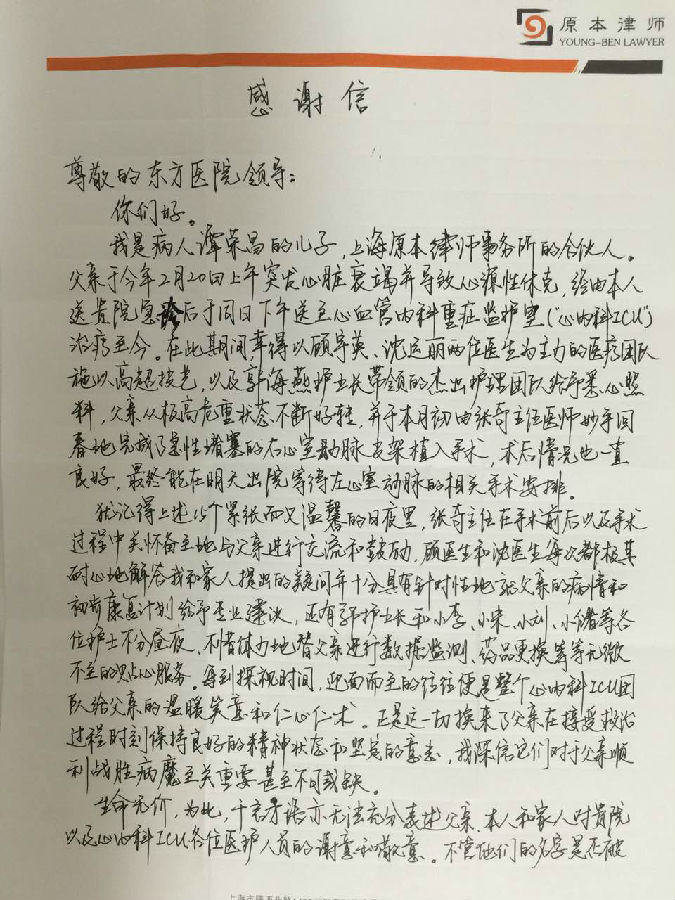 原本律师
YOUNG-BEN LAWYER
感谢信
尊敬的东方医院领导:
你们好。
我是病人谭荣昌的儿子,上海原本律师事务所的合伙人。
父亲于今年2月20日上午突发心脏衰竭并导致心源性休克,经由本人
送贵院急诊后于同日下午送至心血管内科重症监护室("心内科ICU")
治疗至今。在此期间幸得以顾宇英、沈运丽两位医生为主力的医疗团队
施以高超技艺,以及郭海燕护士长带领的杰出护理团队给予悉心照
料,父亲从极高危重状态不断好转,并于本月初由张奇主任医师妙手回
春地完成了急性堵塞的右心室动脉支架植入手术,术后情况也一直
良好,最终能在明天出院等待左心室动脉的相关手术安排。
犹记得上述15个紧张而又温馨的日夜里,张奇主任在手术前后以及手术
过程中关怀备至地与父亲进行交流和鼓励,顾医生和沈医生每次都极其
耐心地解答我和家人提出的疑问并十分具有针对性地就父亲的病情和
初步康复计划给予专业建议,还有郭护士长和小李、小宋、小刘、小储等各
位护士不分昼夜、不惜体力地替父亲进行数据监测、药品更换等等无微
不至的贴心服务。每到探视时间,迎面而至的往往便是整个心内科ICU团
队给父亲的温暖笑意和仁心仁术。正是这一切换来了父亲在接受救治
过程时刻保持良好的精神状态和坚定的意志,我深信它们对于父亲顺
利战胜病魔至关重要甚至不可或缺。
生命无价,为此,千言万语亦无法充分表述父亲、本人和家人对贵院
以及心内科ICU各位医护人员的谢意和敬意。不管他们的名字是否被